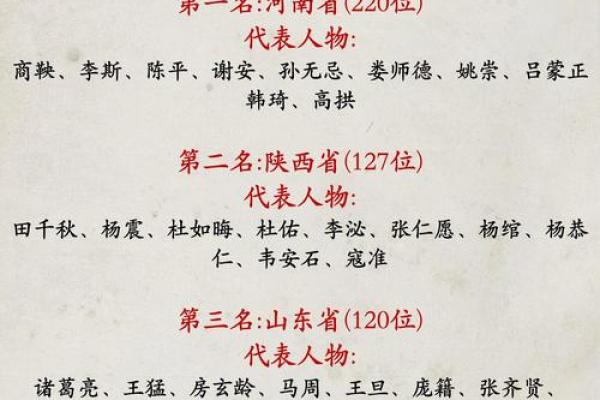 第一名:河南省(220位)
代表人物:
商鞅、李斯、陈平、谢安、孙无忌、娄师德、姚崇、吕蒙正
韩琦、高拱
第二名:陕西省(127位)
代表人物:
田千秋、杨震、杜如晦、杜佑、李泌、张仁愿、杨绾、杨恭
仁、韦安石、寇准
第三名:山东省(120位)
代表人物:
诸葛亮、王猛、房玄龄、马周、王旦、庞籍、张齐贤、